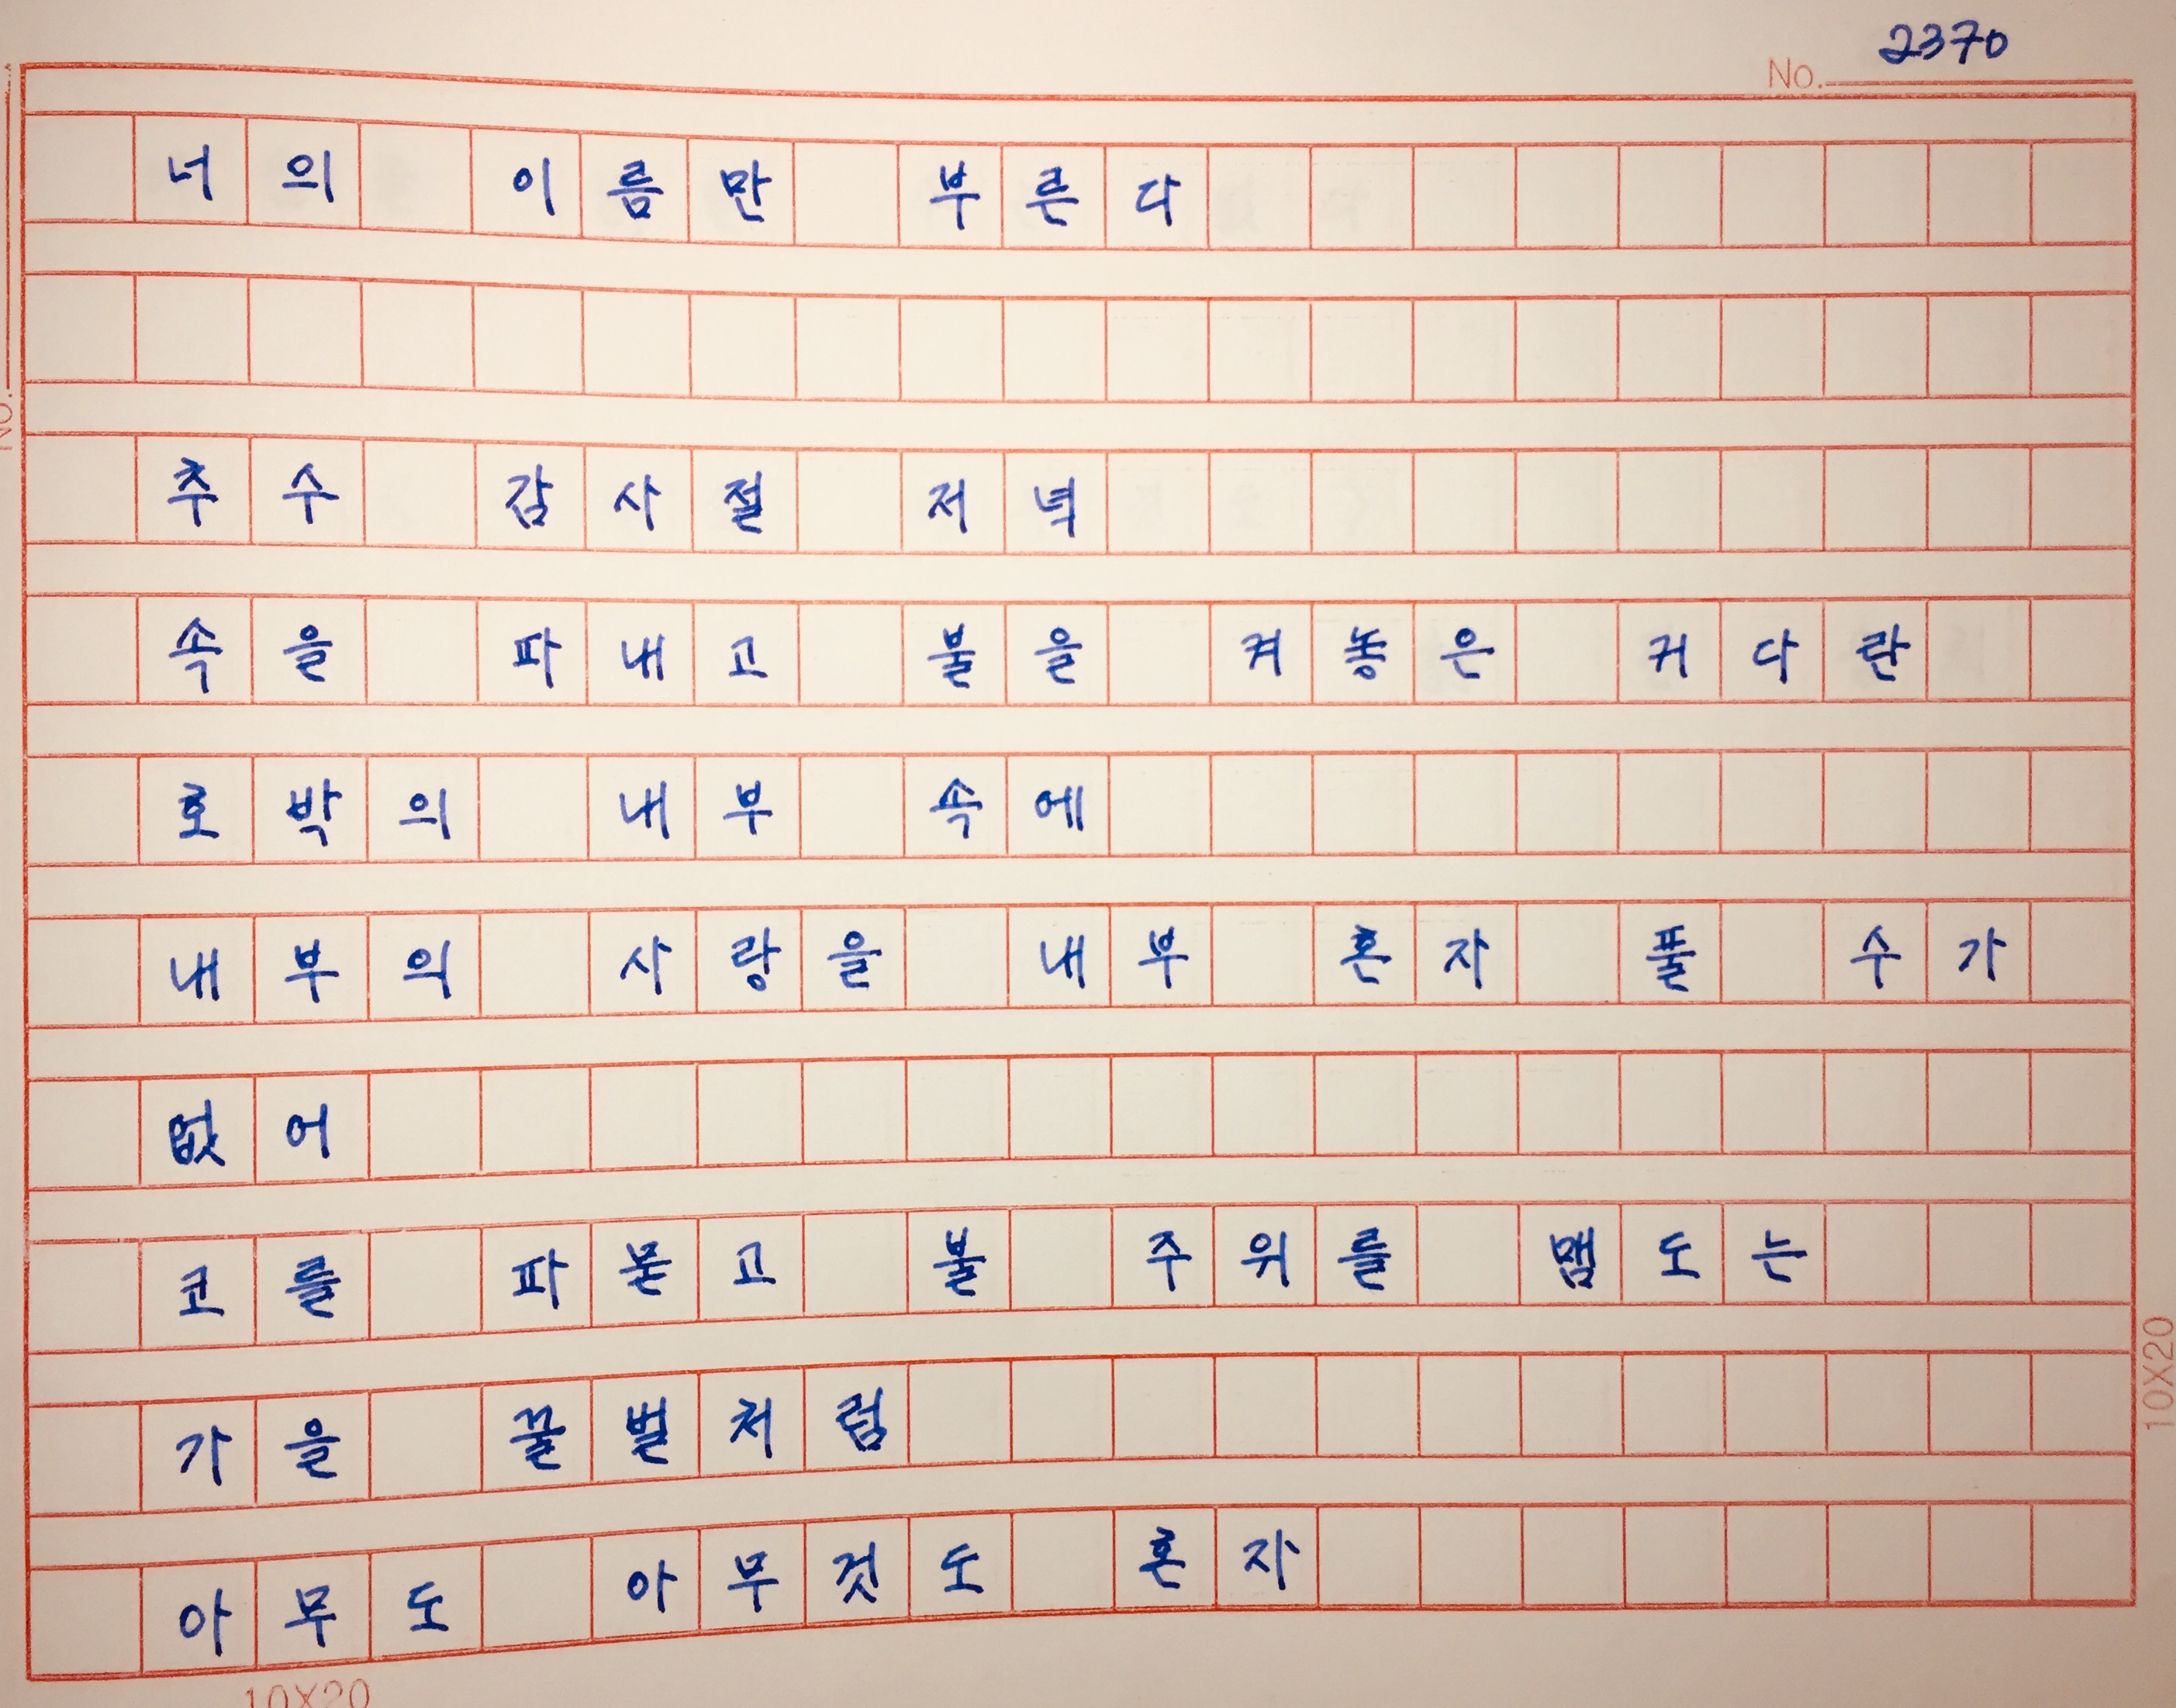 No. 2370
너의 이름만 부른다
추수 감사절 저녁
속을 파내고 불을 켜놓은 커다란
호박의 내부 속에
내부의 사랑을 내부 혼자 풀 수가
없어
코를 파묻고 불 주위를 맴도는
가을 꿀벌처럼
아무도 아무것도 혼자
10X20
10X20
No.